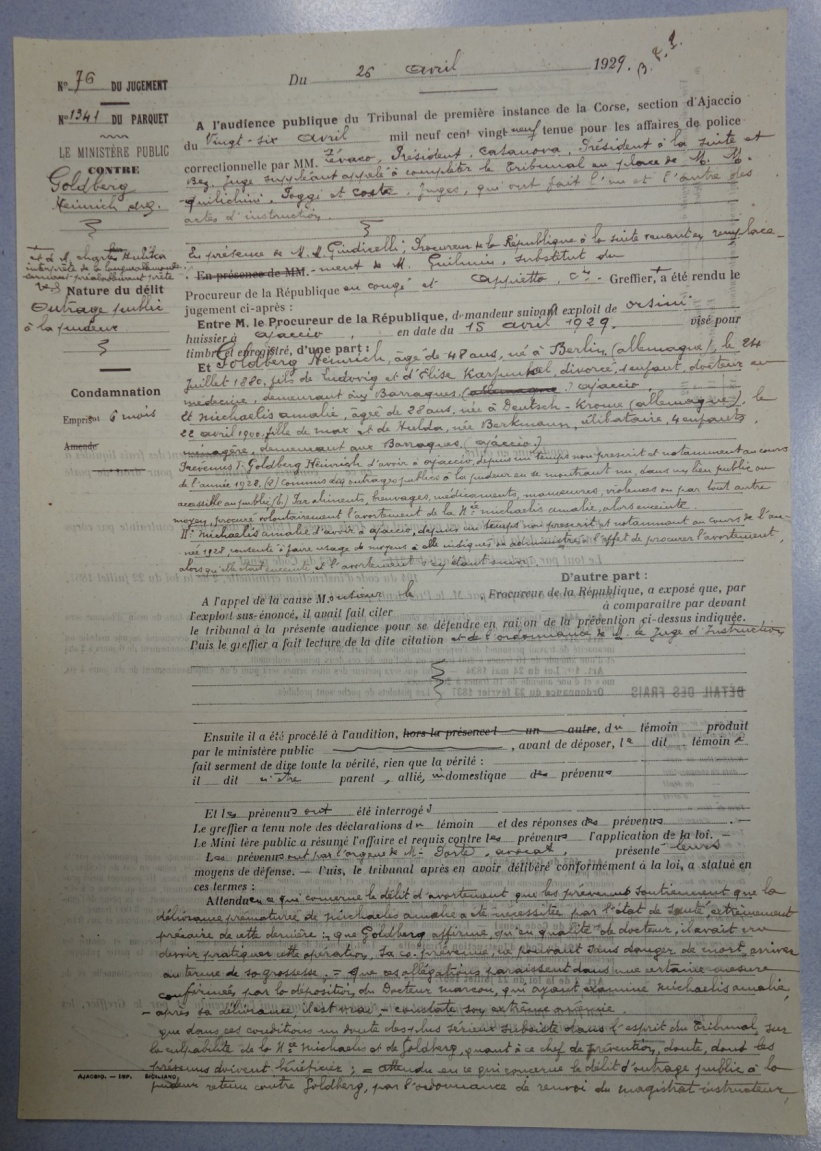 N° 76 DU JUGEMENT
N° 1341 DU PARQUET
LE MINISTÈRE PUBLIC
CONTRE
Goldberg
Heinrich
Nature du délit
Outrage public
à la pudeur
Condamnation
Emprist 6 mois
Amende
Du 26 avril 1929.
A l'audience publique du Tribunal de première instance de la Corse, section d'Ajaccio
du Vingt-six avril mil neuf cent vingt neuf tenue pour les affaires de police
correctionnelle par MM. Zévaco, Président, Casanova, Président à la suite et
Juge suppléant appelé à compléter le Tribunal en place de M. M.
Quilichini, Poggi et Coste, juges, qui ont fait l'un et l'autre des
actes d'instruction.
En présence de M. M. Giudicelli, Procureur de la République à la suite venant en remplace-
En présence de MM. -ment de M. Guilmin, substitut du
Procureur de la République en congé et Appietto, Greffier, a été rendu le
jugement ci-après :
Entre M. le Procureur de la République, demandeur suivant exploit de Orsini
huissier à Ajaccio, en date du 15 avril 1929. visé pour
timbre et enregistré, d'une part :
Et Goldberg Heinrich, âgé de 48 ans, né à Berlin (allemagne), le 24
juillet 1880, fils de Ludovig et d'Elise Karfunkel, divorcé, 1 enfant, docteur en
médecine, demeurant aux Barraques (allemagne) Ajaccio
Et Michaelis Amalie, âgée de 28 ans, née à Deutsch-Krone (allemagne), le
22 avril 1900, fille de Max et de Hulda, née Berkmann, célibataire, 4 enfants,
ménagère, demeurant aux Barraques (Ajaccio)
Prévenus I° Goldberg Heinrich d'avoir à Ajaccio, depuis un temps non prescrit et notamment au cours
de l'année 1928, (a) commis des outrages publics à la pudeur en se montrant nu, dans un lieu public ou
accessible au public (b) Par aliments, breuvages, médicaments, manœuvres, violences ou par tout autre
moyen, procuré volontairement l'avortement de la Née Michaelis Amalie, alors enceinte.
II° Michaelis Amalie d'avoir à Ajaccio, depuis un temps non prescrit et notamment au cours de l'an-
née 1928, consenti à faire usage de moyens à elle indiqués ou administrés à l'effet de procurer l'avortement,
alors qu'elle était enceinte et l'avortement s'en étant suivi
D'autre part :
A l'appel de la cause Monsieur le Procureur de la République, a exposé que, par
l'exploit sus-énoncé, il avait fait citer à comparaître par devant
le tribunal à la présente audience pour se défendre en raison de la prévention ci-dessus indiquée.
Puis le greffier a fait lecture de la dite citation et de l'ordonnance de M. le Juge d'Instruction
Ensuite il a été procédé à l'audition, hors la présence l un autre, du témoin produit
par le ministère public , avant de déposer, le dit témoin a
fait serment de dire toute la vérité, rien que la vérité :
il dit n'être parent, allié, ni domestique des prévenus
Et les prévenus ont été interrogés
Le greffier a tenu note des déclarations du témoin et des réponses des prévenus. —
Le Ministère public a résumé l'affaire et requis contre les prévenus l'application de la loi. —
Les prévenus ont par l'organe de Me Porte, avocat, présenté leurs
moyens de défense. — Puis, le tribunal après en avoir délibéré conformément à la loi, a statué en
ces termes :
Attendu en ce qui concerne le délit d'avortement que les prévenus soutiennent que la
délivrance prématurée de Michaelis Amalie a été nécessitée par l'état de santé extrêmement
précaire de cette dernière ; que Goldberg affirme, qu'en qualité de docteur, il avait cru
devoir pratiquer cette opération, sa co-prévenue, ne pouvant sans danger de mort, arriver
au terme de sa grossesse ; = que ces allégations paraissent dans une certaine mesure
confirmées, par la déposition du Docteur Marcou, qui ayant examiné Michaelis Amalie,
- après sa délivrance, il est vrai, - constate son extrême anémie
que dans ces conditions un doute des plus sérieux subsiste dans l'esprit du Tribunal, sur
la culpabilité de la Née Michaelis et de Goldberg, quant à ce chef de prévention, doute, dont les
prévenus doivent bénéficier ; = attendu en ce qui concerne le délit d'outrage public à la
pudeur retenu contre Goldberg, par l'ordonnance de renvoi du magistrat instructeur,
AJACCIO. — IMP. SICILIANO,